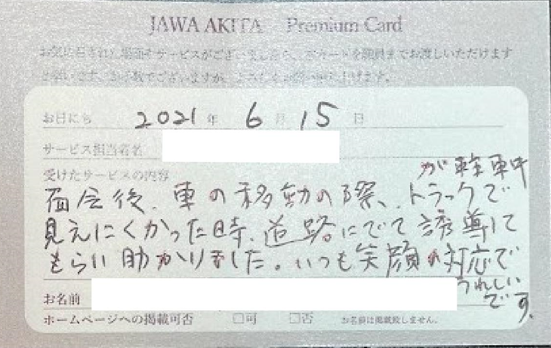 JAWA AKITA Premium Card
お気に召された場面やサービスがございましたら、本カードを職員までお渡しいただけます
お日にち 2021年 6月 15日
サービス担当者名
受けたサービスの内容
が駐車中
面会後、車の移動の際、トラックで
見えにくかった時、道路にでて誘導して
もらい助かりました。いつも笑顔の対応で
うれしい
です。
お名前
ホームページへの掲載可否 □可 □否 お名前は掲載致しません。